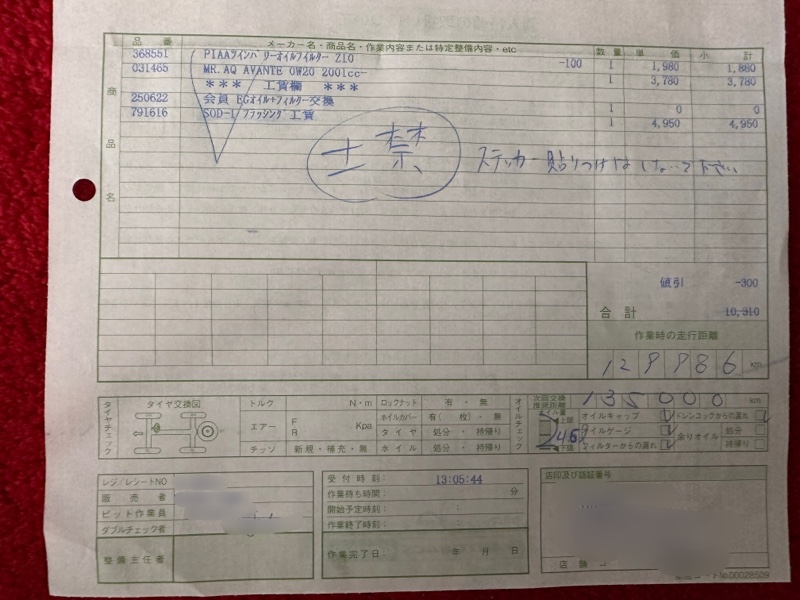 品 番 メーカー名・商品名・作業内容または特定整備内容・etc 数 量 単 価 小 計
368551 PIAAツインパワーオイルフィルター Z10 -100 1 1,980 1,880
031465 MR.AQ AVANTE 0W20 2001cc- 1 3,780 3,780
*** 工賃欄 ***
250622 会員 EGオイル+フィルター交換 1 0 0
791616 SOD-1 フラッシング 工賃 1 4,950 4,950
商 品 名
士禁 ステッカー貼りつけはしないで下さい
値引 -300
合 計 10,310
作業時の走行距離
129986 km
タイヤチェック
タイヤ交換図
トルク N・m
エアー F R Kpa
チッソ 新規・補充・無
ロックナット 有・無
ホイルカバー 有(枚)・無
タイヤ 処分・持帰り
ホイル 処分・持帰り
オイルチェック
次回交換推奨距離 135000 km
オイル量 上限 下限 4.6
オイルキャップ ドレンコックからの漏れ
オイルゲージ 余りオイル 処分
フィルターからの漏れ 持帰り
レジ/レシートNO
販売者
ピット作業員
ダブルチェック者
整備主任者
受付時刻: 13:05:44
作業待ち時間: 分
開始予定時刻: :
作業終了時刻: :
作業完了日: 年 月 日
店印及び認証番号
店舗
No.00028509